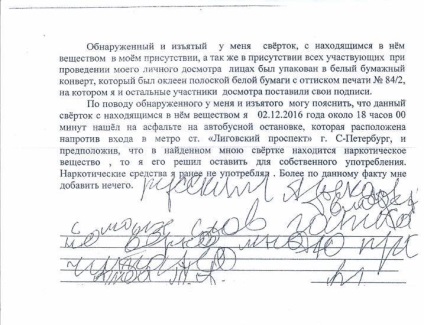 Обнаруженный и изъятый у меня свёрток, с находящимся в нём
веществом в моём присутствии, а так же в присутствии всех участвующих при
проведении моего личного досмотра лицах был упакован в белый бумажный
конверт, который был оклеен полоской белой бумаги с оттиском печати № 84/2,
на котором я и остальные участники досмотра поставили свои подписи.
По поводу обнаруженного у меня и изъятого могу пояснить, что данный
свёрток с находящимся в нём веществом я 02.12.2016 года около 18 часов 00
минут нашёл на асфальте на автобусной остановке, которая расположена
напротив входа в метро ст. «Лиговский проспект» г. С-Петербург, и
предположив, что в найденном мною свёртке находится наркотическое
вещество , то я его решил оставить для собственного употребления.
Наркотические средства я ранее не употреблял . Более по данному факту мне
добавить нечего.
русским языком владею
с моих слов записано
верно мною про
читано